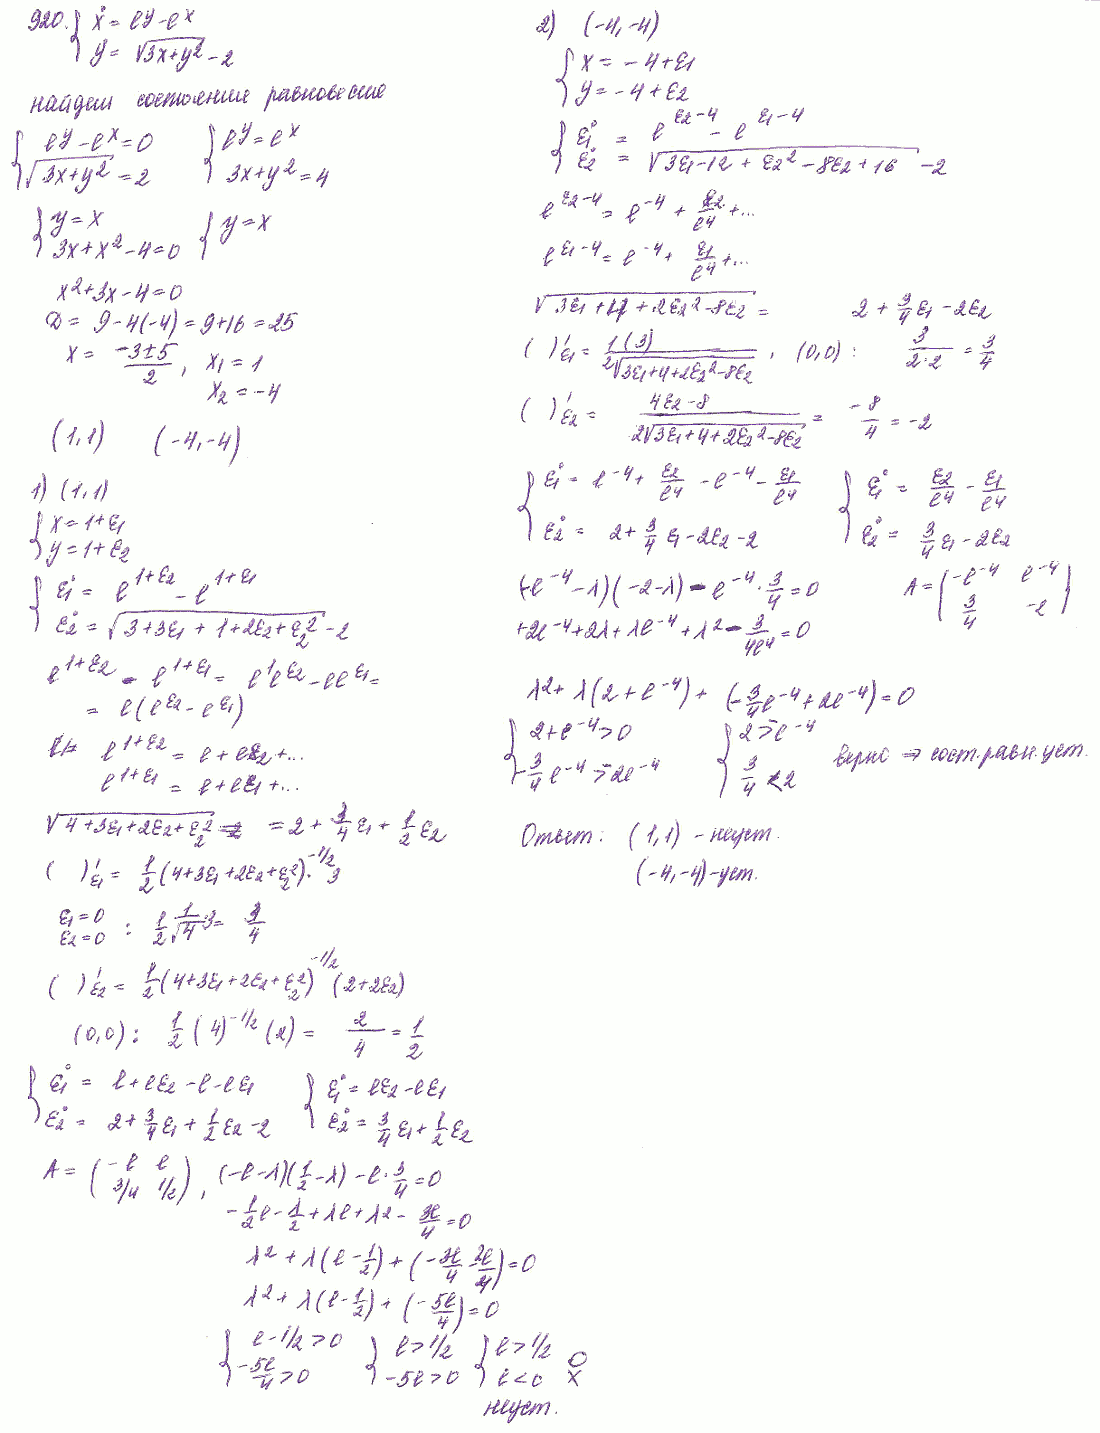 920. { ẋ = e^y - e^x
ẏ = √(3x+y²) - 2
найдем состояние равновесие
{ e^y - e^x = 0 { e^y = e^x
√(3x+y²) = 2 3x+y² = 4
{ y = x { y = x
3x + x² - 4 = 0
x² + 3x - 4 = 0
D = 9 - 4(-4) = 9 + 16 = 25
x = (-3±5)/2, x₁ = 1
x₂ = -4
(1,1) (-4,-4)
1) (1,1)
{ x = 1+ε₁
y = 1+ε₂
{ ε̇₁ = e^(1+ε₂) - e^(1+ε₁)
ε̇₂ = √(3+3ε₁ + 1+2ε₂+ε₂²) - 2
e^(1+ε₂) - e^(1+ε₁) = e¹e^ε₂ - ee^ε₁ =
= e(e^ε₂ - e^ε₁)
e^(1+ε₂) = e + eε₂ + ...
e^(1+ε₁) = e + eε₁ + ...
√(4+3ε₁+2ε₂+ε₂²) = 2 + 3/4 ε₁ + 1/2 ε₂
( )'ε₁ = 1/2 (4+3ε₁+2ε₂+ε₂²)^(-1/2) · 3
ε₁=0
ε₂=0 : 1/2 1/√4 3 = 3/4
( )'ε₂ = 1/2 (4+3ε₁+2ε₂+ε₂²)^(-1/2) (2+2ε₂)
(0,0): 1/2 (4)^(-1/2) (2) = 2/4 = 1/2
{ ε̇₁ = e+eε₂-e-eε₁ { ε̇₁ = eε₂-eε₁
ε̇₂ = 2+3/4 ε₁+1/2 ε₂-2 ε̇₂ = 3/4 ε₁+1/2 ε₂
A = (-e e
3/4 1/2), (-e-λ)(1/2-λ) - e·3/4 = 0
-1/2 e - λ/2 + λe + λ² - 3e/4 = 0
λ² + λ(e-1/2) + (-3e/4 - 2e/4) = 0
λ² + λ(e-1/2) + (-5e/4) = 0
{ e-1/2>0 { e>1/2 { e>1/2 0
-5e/4>0 -5e>0 e<0 x
неуст.
2) (-4,-4)
{ x = -4+ε₁
y = -4+ε₂
{ ε̇₁ = e^(ε₂-4) - e^(ε₁-4)
ε̇₂ = √(3ε₁-12 + ε₂² - 8ε₂+16) - 2
e^(ε₂-4) = e^-4 + ε₂/e⁴ + ...
e^(ε₁-4) = e^-4 + ε₁/e⁴ + ...
√(3ε₁+4+2ε₂²-8ε₂) = 2 + 3/4 ε₁ - 2ε₂
( )'ε₁ = 1(3)/(2√(3ε₁+4+2ε₂²-8ε₂)), (0,0): 3/(2·2) = 3/4
( )'ε₂ = (4ε₂-8)/(2√(3ε₁+4+2ε₂²-8ε₂)) = -8/4 = -2
{ ε̇₁ = e^-4 + ε₂/e⁴ - e^-4 - ε₁/e⁴ { ε̇₁ = ε₂/e⁴ - ε₁/e⁴
ε̇₂ = 2+3/4 ε₁-2ε₂-2 ε̇₂ = 3/4 ε₁-2ε₂
(-e^-4-λ)(-2-λ) - e^-4·3/4 = 0 A = (-e^-4 e^-4
3/4 -2)
+2e^-4+2λ+λe^-4+λ² - 3/4e⁴ = 0
λ² + λ(2+e^-4) + (-3/4 e^-4+2e^-4) = 0
{ 2+e^-4>0 { 2>e^-4
-3/4 e^-4 > 2e^-4 3/4 < 2 верно ⇒ сост.равн.уст.
Ответ: (1,1) - неуст.
(-4,-4)-уст.